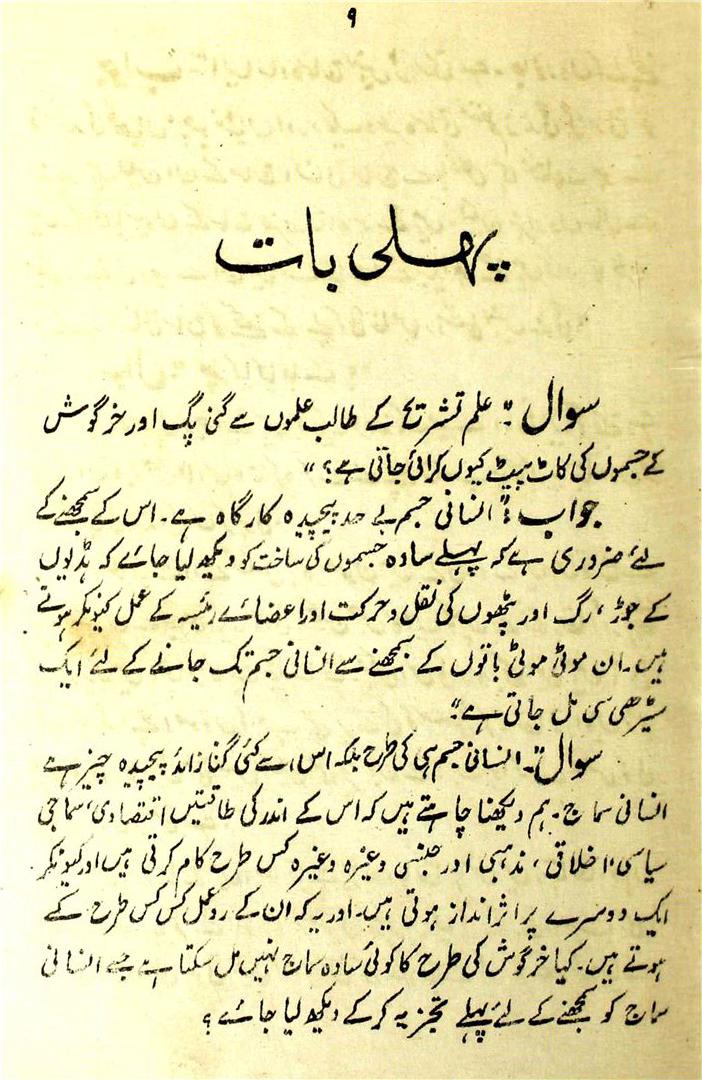 ۹
پہلی بات
سوال :" علم تشریح کے طالب علموں سے گنی پگ اور خرگوش
کے جسموں کی کاٹ پیٹ کیوں کرائی جاتی ہے؟ "
جواب :" انسانی جسم بے حد پیچیدہ کارگاہ ہے۔ اس کے سمجھنے کے
لئے ضروری ہے کہ پہلے سادہ جسموں کی ساخت کو دیکھ لیا جائے کہ ہڈیوں
کے جوڑ، رگ اور پٹھوں کی نقل و حرکت اور اعضائے رئیسہ کے عمل کیونکر ہوتے
ہیں۔ ان موٹی موٹی باتوں کے سمجھنے سے انسانی جسم تک جانے کے لئے ایک
سیڑھی سی مل جاتی ہے۔"
سوال :۔ انسانی جسم ہی کی طرح بلکہ اس سے کئی گنا زائد پیچیدہ چیز ہے
انسانی سماج۔ ہم دیکھنا چاہتے ہیں کہ اس کے اندر کی طاقتیں اقتصادی، سماجی
سیاسی، اخلاقی، مذہبی اور جنسی وغیرہ وغیرہ کس طرح کام کرتی ہیں اور کیونکر
ایک دوسرے پر اثر انداز ہوتی ہیں۔ اور یہ کہ ان کے ردعمل کس کس طرح کے
ہوتے ہیں۔ کیا خرگوش کی طرح کا کوئی سادہ سماج نہیں مل سکتا ہے جسے انسانی
سماج کو سمجھنے کے لئے پہلے تجزیہ کر کے دیکھ لیا جائے؟